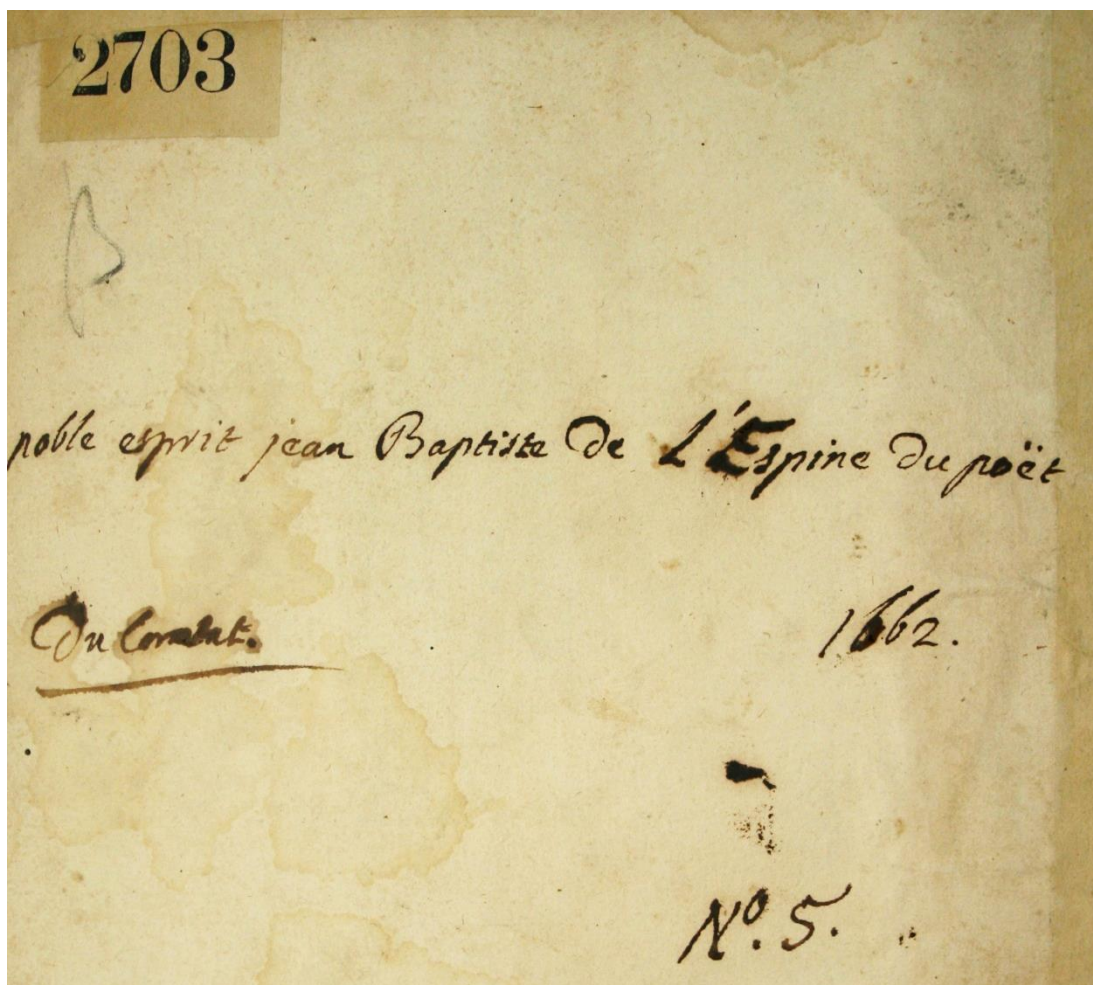 2703
B
noble esprit jean Baptiste de L'Espine du poët
Du Comtat.
1662.
N°. 5.